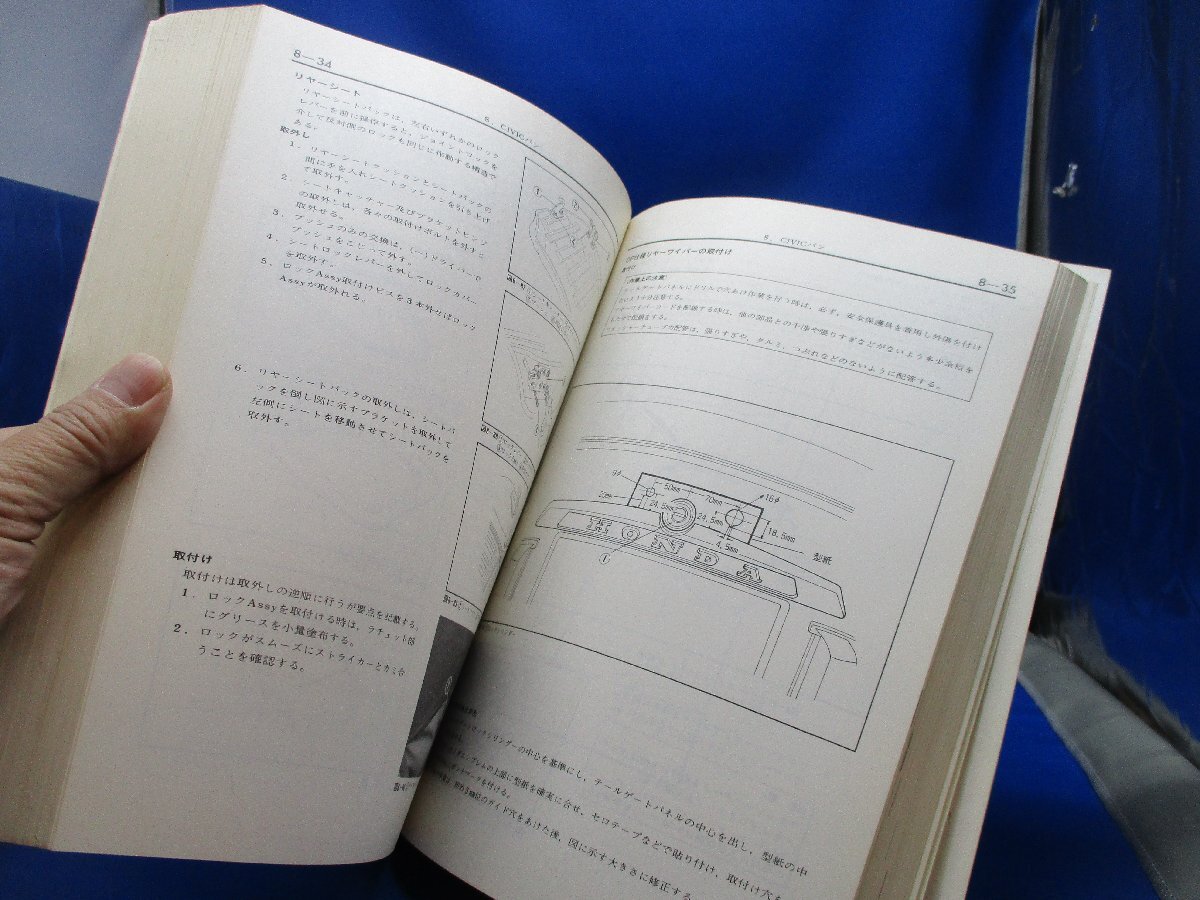 8—34
8. CIVICバン
リヤーシート
リヤーシートバックは、左右いずれかのロック
レバーを前に操作すると、ジョイントロックを
介して反対側のロックも同じに作動する構造で
ある。
取外し
1. リヤーシートクッションとシートバックの
間に手を入れシートクッションを引き上げ
て取外す。
2. シートキャッチャー及びブラケットヒンジ
の取外しは、各々の取付けボルトを外すと
取外せる。
3. ブッシュのみの交換は、(一)ドライバーで
ブッシュをこじって外す。
4. シートロックレバーを外してロックカバー
を取外す。
5. ロックAssy取付けビスを3本外せばロック
Assyが取外れる。
6. リヤーシートバックの取外しは、シートバ
ックを倒し図に示すブラケットを取外して
左側にシートを移動させてシートバックを
取外す。
取付け
取付けは取外しの逆順に行うが要点を記載する。
1. ロックAssyを取付ける時は、ラチェット部
にグリースを少量塗布する。
2. ロックがスムーズにストライカーとカミ合
うことを確認する。
① ②
8. CIVICバン
8—35
リヤーワイパーの取付け
取付け
テールゲートパネルにドリルで穴あけ作業を行う時は、必ず、安全保護具を着用し外傷を付け
ないよう十分注意する。
コードを配線する時は、他の部品との干渉や張りすぎなどがないよう少余裕を
もたせて配線をする。
チューブの配管は、張りすぎや、タルミ、つぶれなどのないように配管する。
9φ
50mm
70mm
16φ
2mm
24.5mm
24.5mm
18.5mm
4.5mm
型紙
HONDA
①
シリンダーの中心を基準にし、テールゲートパネルの中心を出し、型紙の中
エンブレムの上部に型紙を確実に合せ、セロテープなどで貼り付け、取付け穴を
マークを付ける。
のガイド穴をあけた後、図に示す大きさに修正する